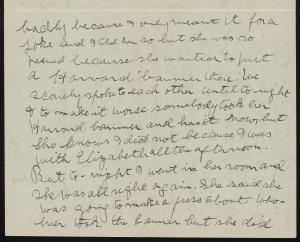 badly because I only meant it for a
joke and I told her so but she was so
peeved because she wanted to put
a Harvard banner there. We
scarcly spoke to each other until to-night
& to make it worse somebody took her
Harvard banner and has it now but
she knows I did not because I was
with Elizabeth all the afternoon.
But to-night I went in her room and
she was all right again. She said she
was going to make a fuss about who-
ever took the banner but she did